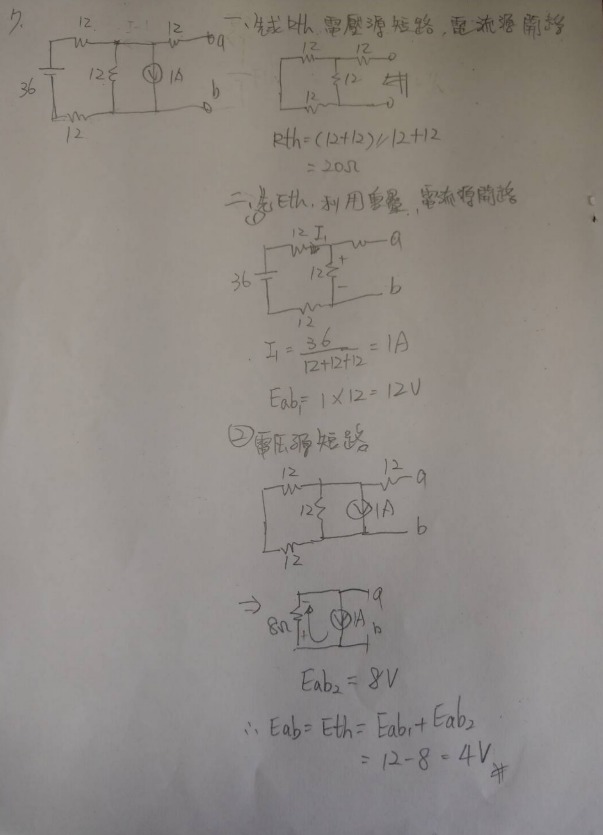 7.
12
12
a
36
12
1A
b
12
一、先求Rth, 電壓源短路, 電流源開路
12
12
12
12
Rth = (12+12)//12+12
= 20Ω
二、求Eth, 利用重疊, 電流源開路
①
12
I₁
a
36
12
+
-
b
12
I₁ = 36/(12+12+12) = 1A
Eab₁ = 1×12 = 12V
② 電压源短路
12
12
a
12
1A
b
12
⇒
8Ω
-
+
1A
a
b
Eab₂ = 8V
∴ Eab = Eth = Eab₁ + Eab₂
= 12-8 = 4V #